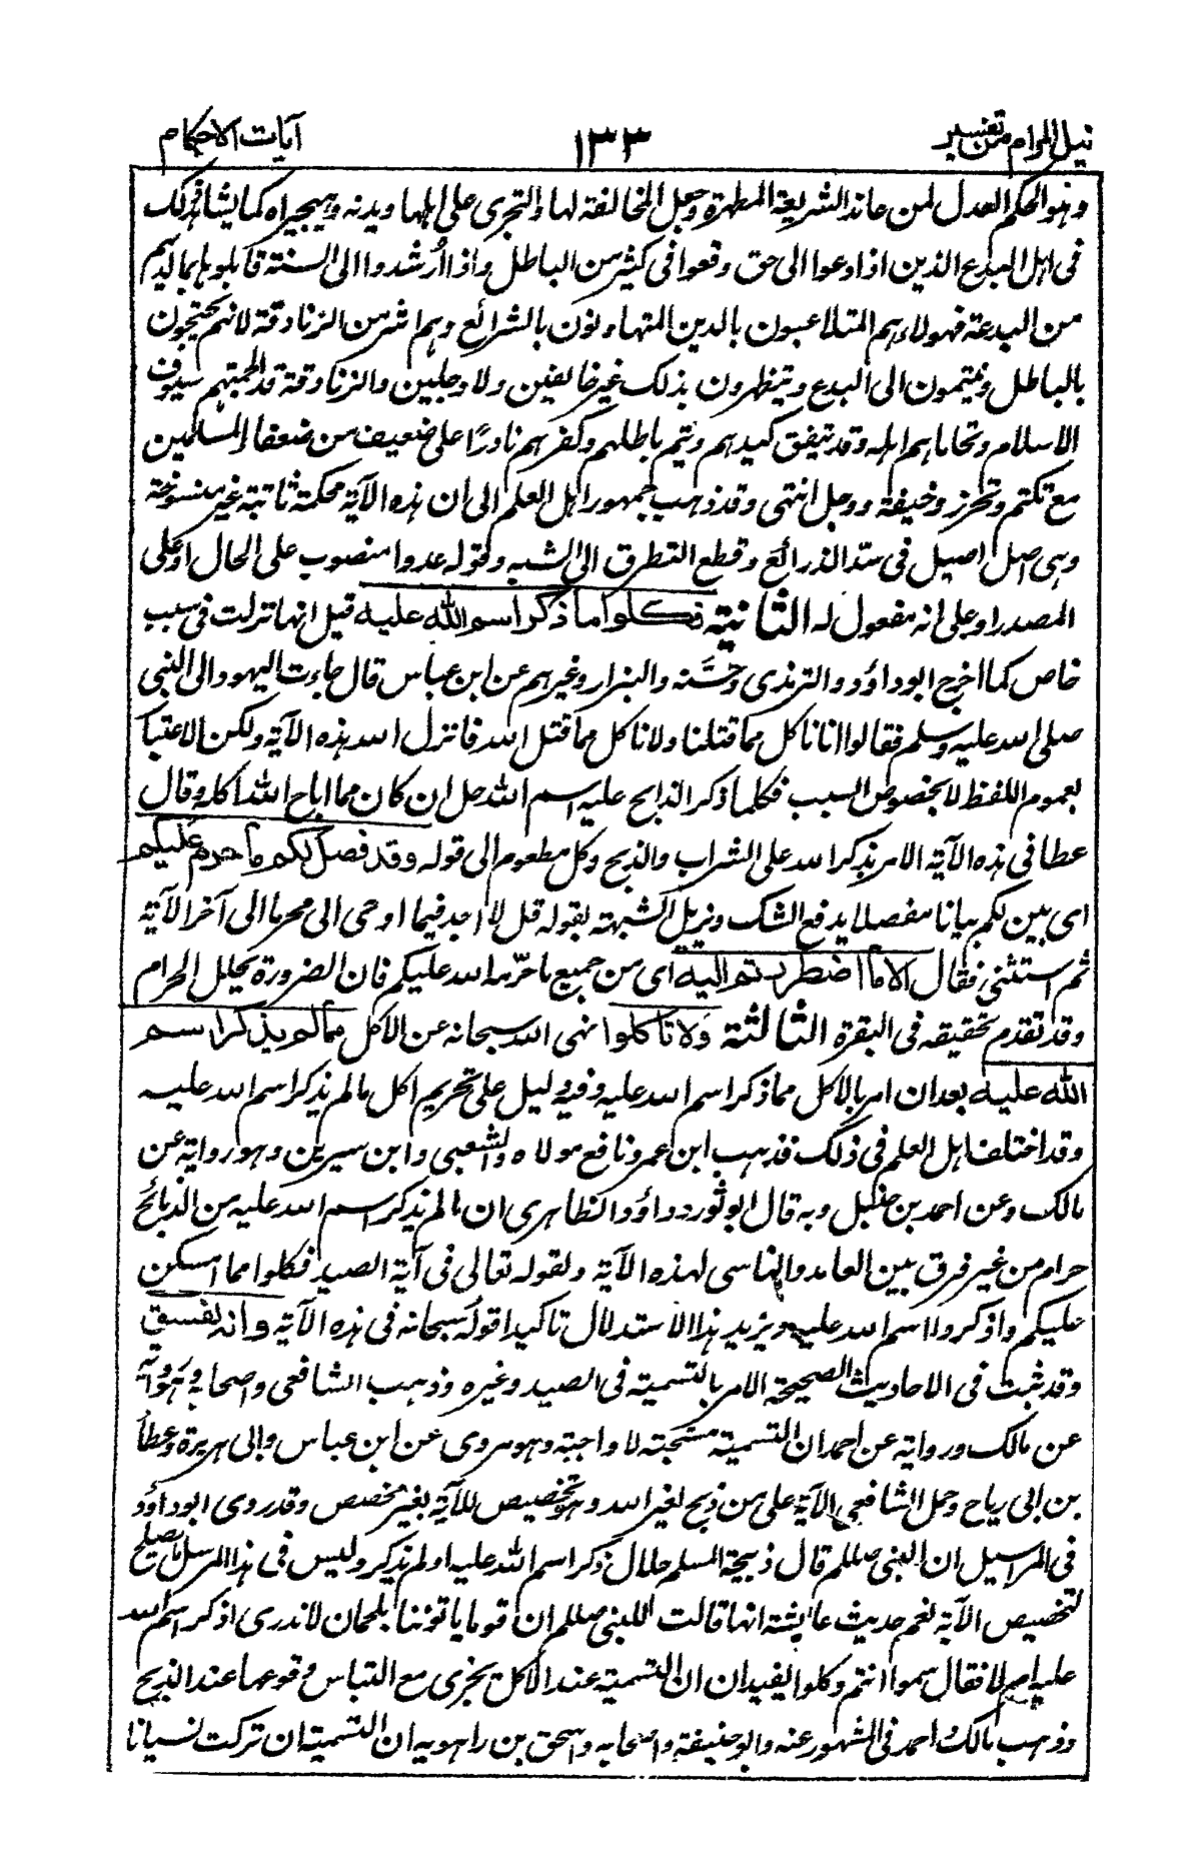 نيل المرام من تفسير ١٣٣ آيات الاحكام
وهو الحكم العدل لمن عاند الشريعة المطهرة وجعل المخالفة لها والتجرى على اهلها ديدنه وهجيراه كما يشاهد ذلك
فى اهل البدع الذين اذا دعوا الى حق وقعوا فى كثير من الباطل واذا ارشدوا الى السنة قابلوها بما لديهم
من البدعة فهولاء هم المتلاعبون بالدين المتهاونون بالشرائع وهم اشر من الزنادقة لانهم يحتجون
بالباطل وينتمون الى البدع ويتظهرون بذلك غير خائفين ولا وجلين والزنادقة قد الجمتهم سيوف
الاسلام وتحاماهم اهله وقد ينفق كيدهم ويتم باطلهم وكفرهم نادرًا على ضعيف من ضعفاء المسلمين
مع تكتم وتحرز وخيفة ووجل انتهى وقد ذهب جمهور اهل العلم الى ان هذه الآية محكمة ثابتة غير منسوخة
وهى اصل اصيل فى سدّ الذرائع وقطع التطرق الى الشبه وقوله عدوا منصوب على الحال او على
المصدر او على انه مفعول له الثانية فكلوا مما ذكر اسم الله عليه قيل انها نزلت فى سبب
خاص كما اخرج ابو داؤد والترمذى وحسَّنه والبزار وغيرهم عن ابن عباس قال جاءت اليهود الى النبى
صلى الله عليه وسلم فقالوا انا ناكل مما قتلنا ولا ناكل مما قتل الله فانزل الله هذه الآية ولكن الاعتبا
بعموم اللفظ لا بخصوص السبب فكلما ذكر الذابح عليه اسم الله حل ان كان مما اباح الله اكله وقال
عطا فى هذه الآية الامر بذكر الله على الشراب والذبح وكل مطعوم الى قوله وقد فصل لكم ما حرم عليكم
اى بين لكم بيانا مفصلا يدفع الشك ويزيل الشبهة بقوله قل لا اجد فيما اوحى الى محرما الى آخر الآية
ثم استثنى فقال الا ما اضطررتم اليه اى من جميع ما حرّمه الله عليكم فان الضرورة تحلل الحرام
وقد تقدم تحقيقه فى البقرة الثالثة ولا تاكلوا نهى الله سبحانه عن الاكل مما لم يذكر اسم
الله عليه بعد ان امر بالاكل مما ذكر اسم الله عليه وفيه دليل على تحريم اكل ما لم يذكر اسم الله عليه
وقد اختلف اهل العلم فى ذلك فذهب ابن عمر ونافع مولاه والشعبى وابن سيرين وهو رواية عن
مالك وعن احمد بن حنبل وبه قال ابو ثور وداؤد الظاهرى ان ما لم يذكر اسم الله عليه من الذبائح
حرام من غير فرق بين العامد والناسى لهذه الآية ولقوله تعالى فى آية الصيد فكلوا مما امسكن
عليكم واذكروا اسم الله عليه ويزيد هذا الاستدلال تاكيدا قوله سبحانه فى هذه الآية وانه لفسق
وقد ثبت فى الاحاديث الصحيحة الامر بالتسمية فى الصيد وغيره وذهب الشافعى واصحابه وهو رواية
عن مالك ورواية عن احمد ان التسمية مستحبة لا واجبة وهو مروى عن ابن عباس وابى هريرة وعطا
بن ابى رباح وحمل الشافعى الآية على من ذبح لغير الله وهو تخصيص للآية بغير مخصص وقد روى ابو داؤد
فى المراسيل ان النبى صللم قال ذبيحة المسلم حلال ذكر اسم الله عليه او لم يذكر وليس فى هذا المرسل ما يصلح
لتخصيص الآية نعم حديث عائشة انها قالت للنبى صللم ان قوما ياتوننا بلحمان لا ندرى اذكر اسم الله
عليه ام لا فقال سموا انتم وكلوا يفيد ان التسمية عند الاكل تجزى مع التباس وقوعها عند الذبح
وذهب مالك واحمد فى المشهور عنه وابو حنيفة واصحابه واسحق بن راهويه ان التسمية ان تركت نسيانا